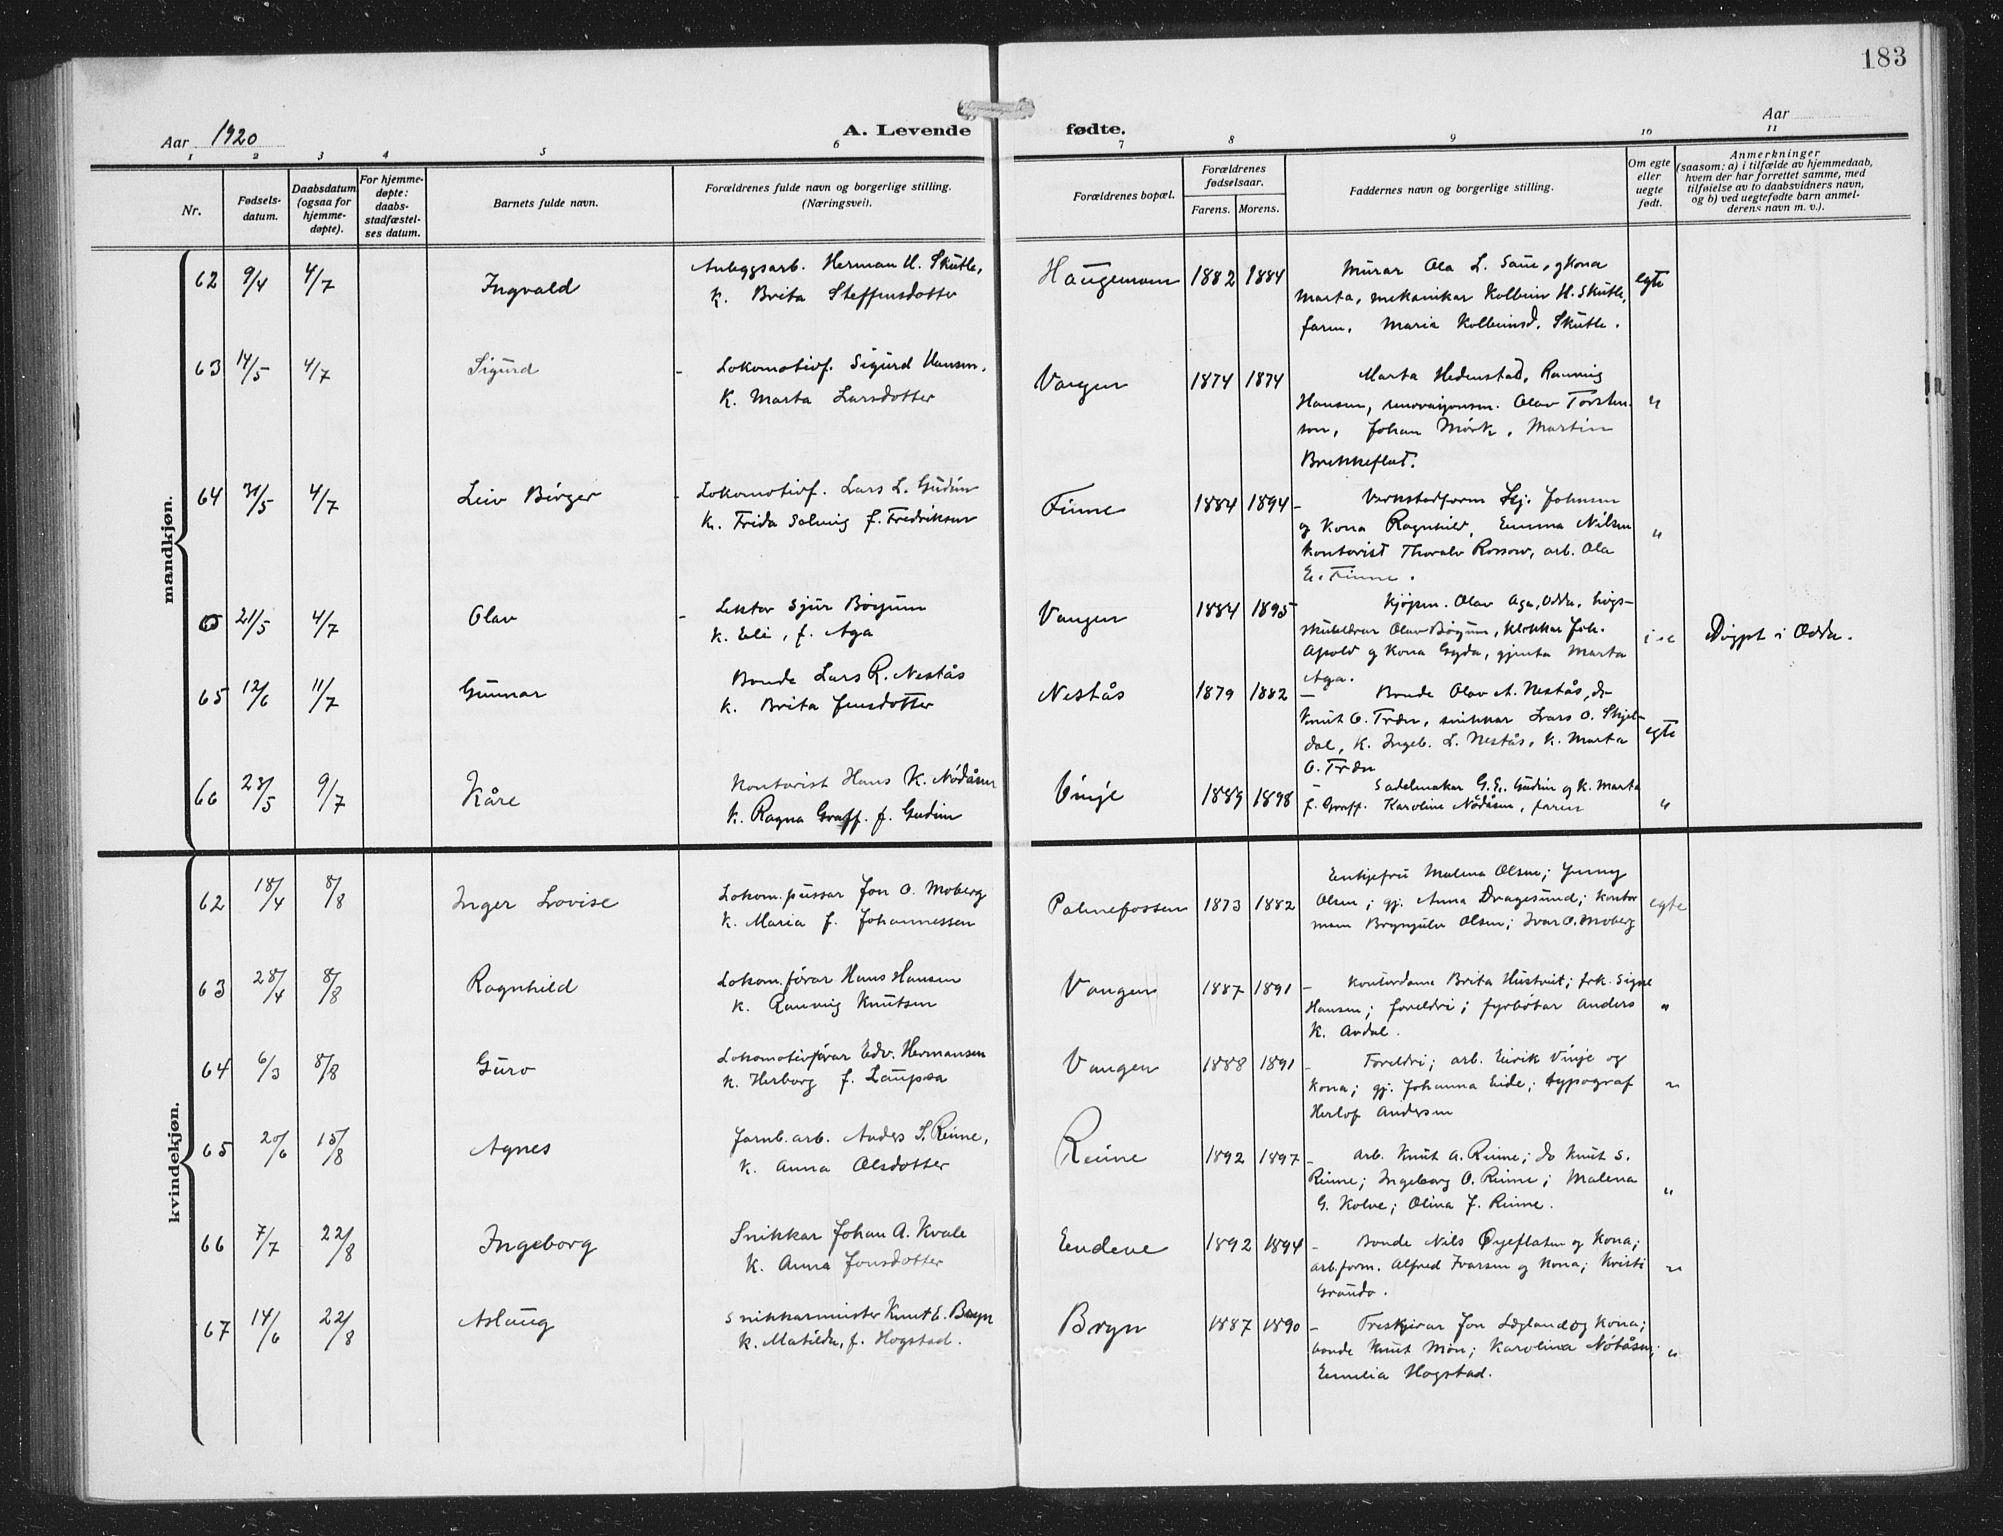 183
Aar 1920
A. Levende fødte.
Aar
1 2 3 4 5 6 7 8 9 10 11
Nr.
Fødsels-
datum.
Daabsdatum
(ogsaa for
hjemme-
døpte).
For hjemme-
døpte:
daabs-
stadfæstel-
ses datum.
Barnets fulde navn.
Forældrenes fulde navn og borgerlige stilling.
(Næringsvei).
Forældrenes bopæl.
Forældrenes
fødselsaar.
Farens. Morens.
Faddernes navn og borgerlige stilling.
Om egte
eller
uegte
født.
Anmerkninger
(saasom: a) i tilfælde av hjemmedaab,
hvem der har forrettet samme, med
tilføielse av to daabsvidners navn,
og b) ved uegtefødte barn anmel-
derens navn m. v.).
mandkjøn.
62 9/4 4/7 Ingvald
Anleggsarb. Herman H. Skutle,
k. Brita Steffensdotter
Haugamoen 1882 1884
Murar Ola L. Saue, og kona
Marta, mekanikar Kolbein H. Skutle,
farm. Maria Kolbeinsd. Skutle.
egte
63 14/5 4/7 Sigurd
- Lokomotivf. Sigurd Hansen,
K. Marta Larsdotter
Vangen 1874 1874
Marta Hedenstad, Rannvig
Hansen, Olav Torsten-
son, Johan Mörk, Martin
Brekkeflat.
"
64 31/5 4/7 Leiv Birger
- Lokomotivf. Lars L. Gudim
K. Frida Solveig f. Fredriksen
Finne 1884 1894
- Verkstadform Johnsen
og kona Ragnhild, Emma Nilsen
kontorist Thoralv Rossow, arb. Ola
E. Finne.
"
21/5 4/7 Olav
- Lektor Sjur Bøyum
K. Eli, f. Aga
Vangen 1884 1895
- Kjøpm. Olav Aga, Odda, høgs-
skulelærar Olav Bøyum, klokkar Joh.
Apold og kona Gyda, gjenta Marta
Aga.
Døypt i Odda.
65 12/6 11/7 Gunnar
Bonde Lars R. Nestås
k. Brita Jensdotter
Nestås 1879 1882
- Bonde Olav A. Nestås, do
Knut O. Træn, snikkar Lars O. Skjel-
dal, K. Ingeb. L. Nestås, K. Marta
O. Træn
egte
66 23/5 9/7 Kåre
Kontorist Hans K. Nødåsen
K. Ragna Graff. f. Gudim
Vinje 1889 1898
- Sadelmakar G. E. Gudim og K. Marta
f. Graff. Karoline Nødåsen, faren
"
kvindekjøn.
62 18/4 8/8 Inger Lovise
Lokom.pussar Jon O. Moberg
K. Maria f. Johannessen
Palmefossen 1873 1882
Enkjefru Malena Olsen; Jenny
Olsen; gj. Anna Dragesund; kontor
mann Brynjulv Olsen; Ivar O. Moberg
egte
63 28/4 8/8 Ragnhild
Lokom.förar Hans Hansen
K. Rannvig Knutsen
Vangen 1887 1891
- Kontordame Brita Hustveit; frk. Signe
Hansen; foreldri; fyrbötar Anders
K. Avdal.
"
64 6/3 8/8 Guro
Lokomotivförar Edv. Hermansen
K. Herborg f. Laupsa
Vangen 1888 1891
- Foreldri; arb. Eirik Vinje og
kona; gj. Johanna Eide; typograf
Herlof Andersen
"
65 20/6 15/8 Agnes
Jarnb.arb. Anders S. Rinne,
K. Anna Olsdotter
Rinne 1892 1897
- arb. Knut A. Rinne; do Knut S.
Rinne; Ingeborg O. Rinne; Malena
G. Kolve; Olina J. Rinne.
"
66 7/7 22/8 Ingeborg
Snikkar Johan A. Kvale
K. Anna Jonsdotter
Endeve 1892 1894
- Bonde Nils Øyeflaten og kona;
arb.form. Alfred Ivarsen og kona; Kristi
Graudo.
"
67 14/6 22/8 Aslaug
Snikkarmeister Knut E. Bryn
K. Matilda, f. Hogstad.
Bryn 1887 1890
- Treskjerar Jon Lægland og kona;
bonde Knut Møn; Karolina Nøtåsen;
Emilia Hogstad.
"